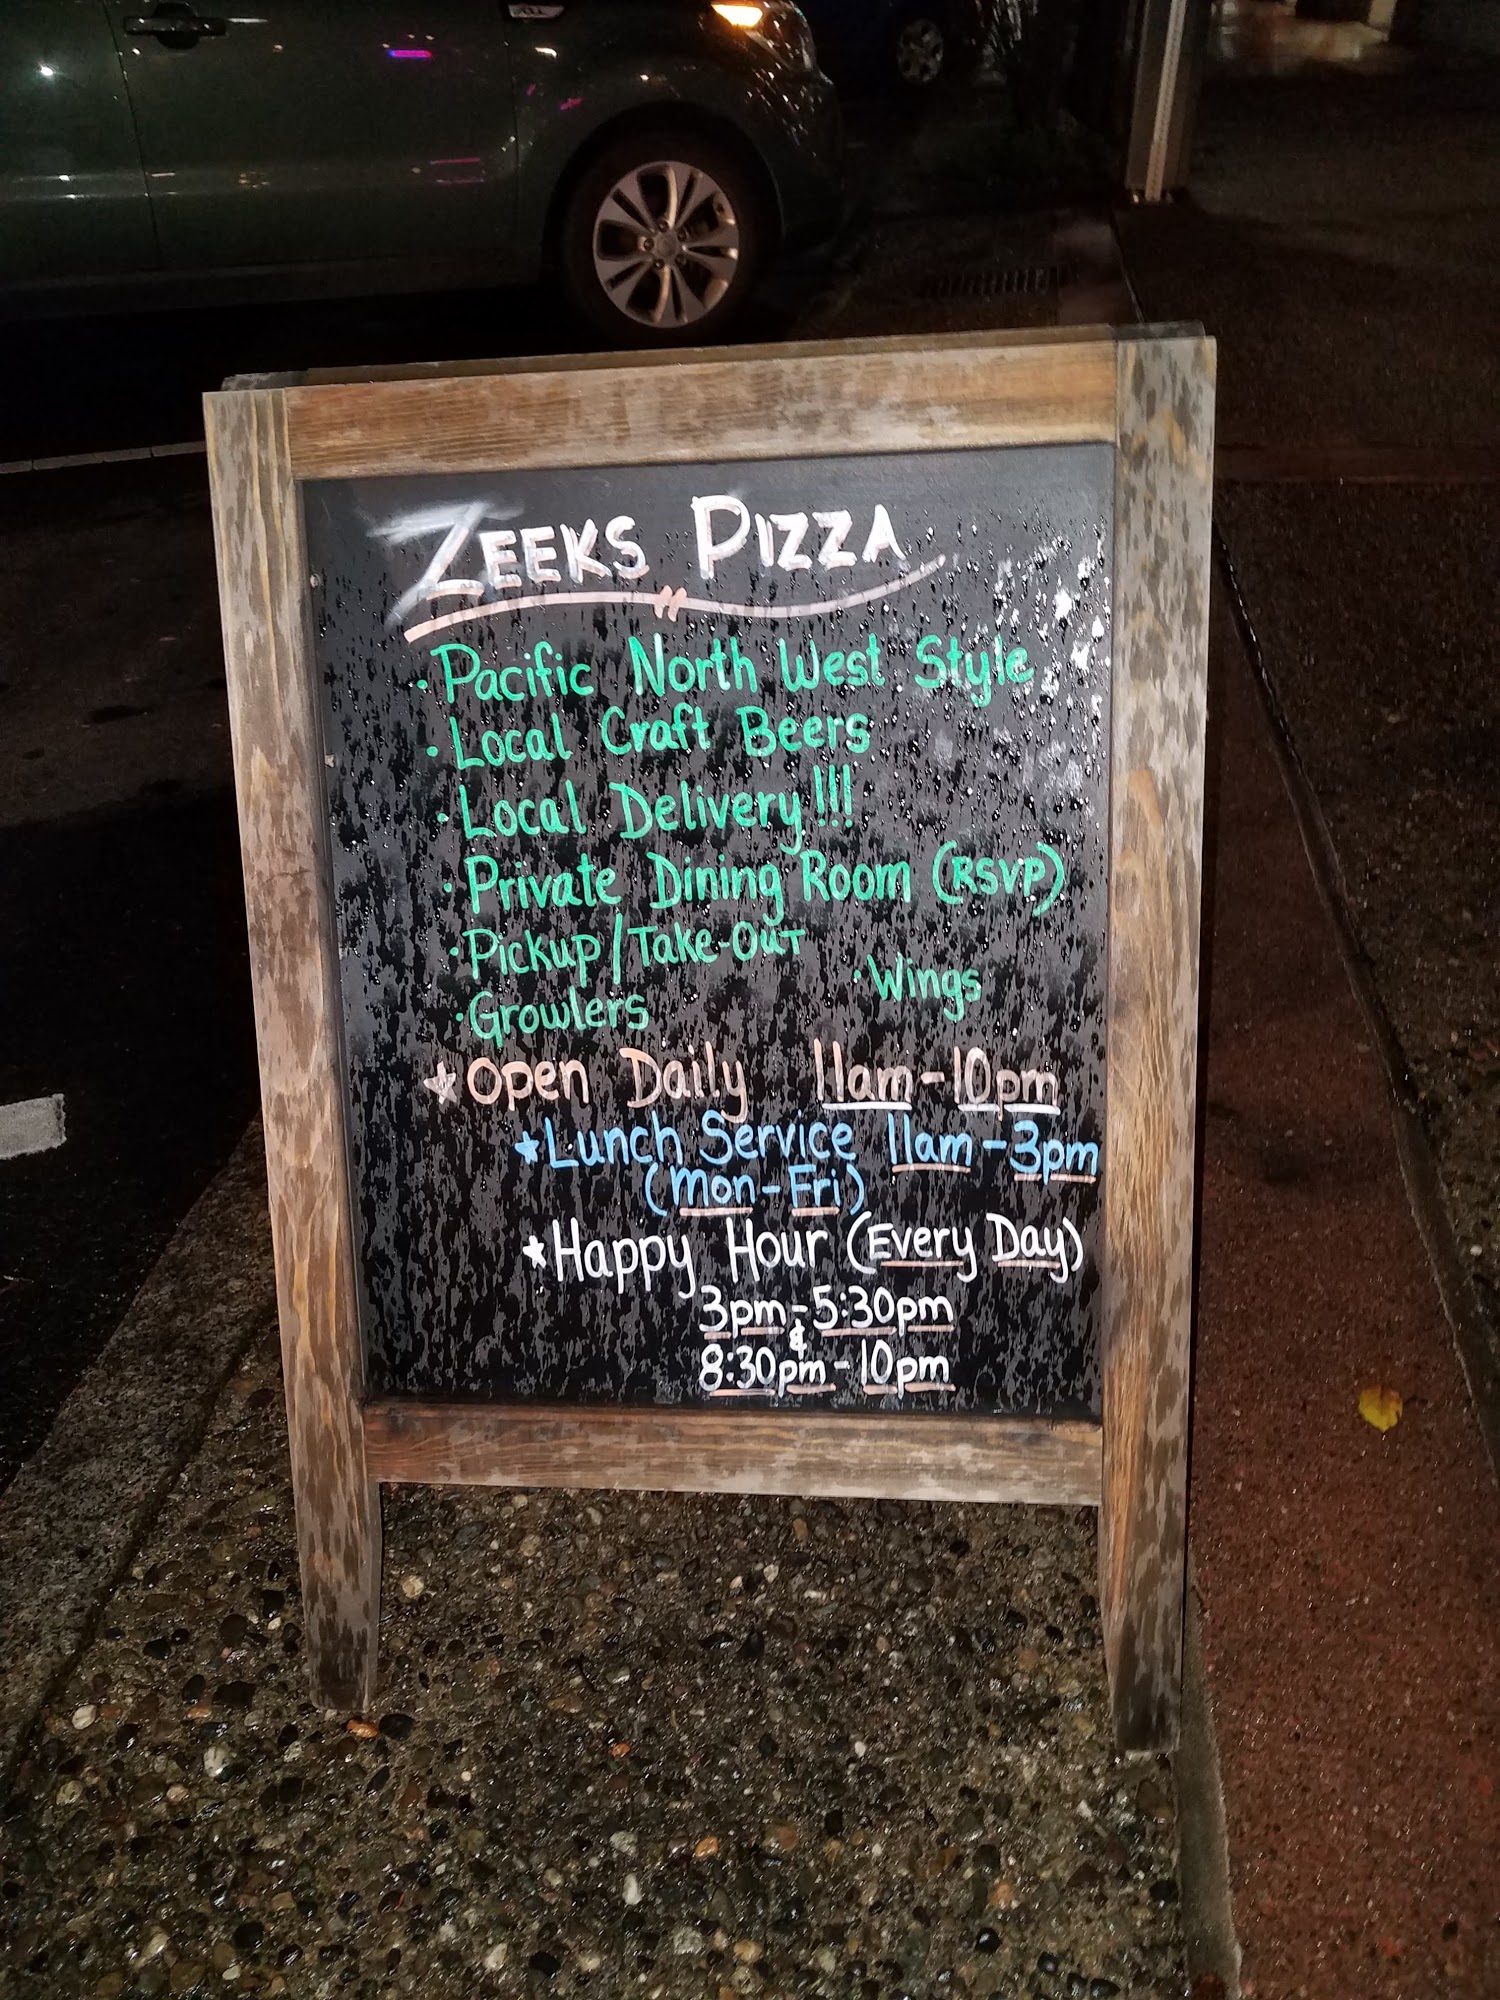 ZEEKS PIZZA
· Pacific North West Style
· Local Craft Beers
· Local Delivery!!!
· Private Dining Room (RSVP)
· Pickup/Take-Out
· Wings
· Growlers
☆ Open Daily 11am-10pm
★ Lunch Service 11am-3pm
(Mon-Fri)
★ Happy Hour (Every Day)
3pm-5:30pm
&
8:30pm-10pm